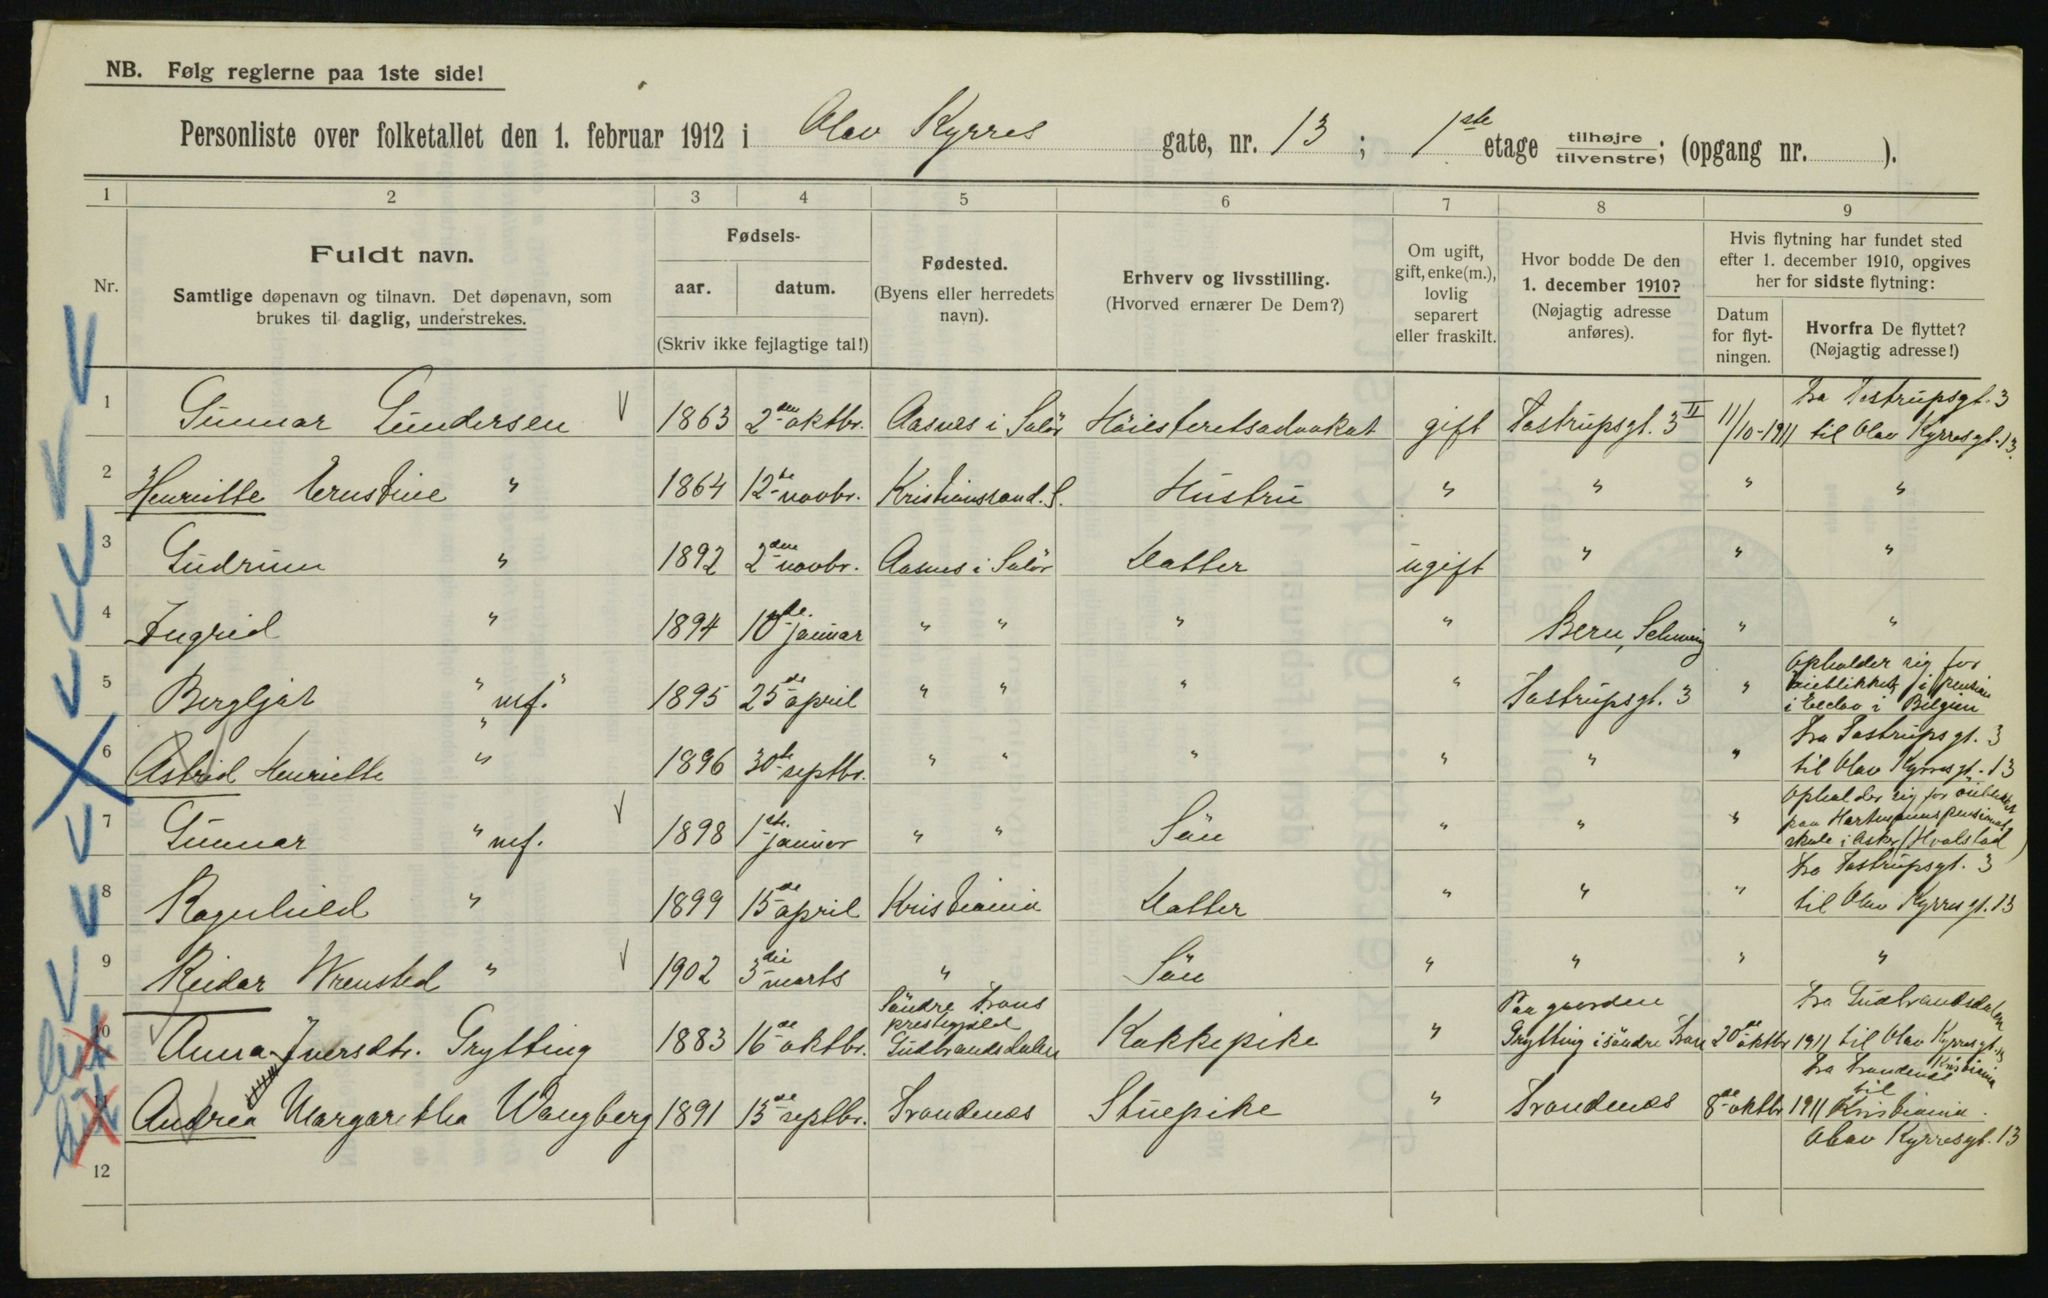 NB. Følg reglerne paa 1ste side!
Personliste over folketallet den 1. februar 1912 i Olav Kyrres gate, nr. 13 ; 1ste etage tilhøjre/tilvenstre; (opgang nr. ).
1 2 3 4 5 6 7 8 9
Nr.
Fuldt navn.
Samtlige døpenavn og tilnavn. Det døpenavn, som
brukes til daglig, understrekes.
Fødsels-
aar. datum.
(Skriv ikke fejlagtige tal!)
Fødested.
(Byens eller herredets
navn).
Erhverv og livsstilling.
(Hvorved ernærer De Dem?)
Om ugift,
gift, enke(m.),
lovlig
separert
eller fraskilt.
Hvor bodde De den
1. december 1910?
(Nøjagtig adresse
anføres).
Hvis flytning har fundet sted
efter 1. december 1910, opgives
her for sidste flytning:
Datum
for flyt-
ningen.
Hvorfra De flyttet?
(Nøjagtig adresse!)
1 Gunnar Gundersen 1863 2den oktbr. Aasnes i Solör Höiesteretsadvokat gift Tostrupsgt. 3 II 11/10-1911 Fra Tostrupsgt. 3
til Olav Kyrresgt. 13.
2 Henriette Ernstine " 1864 12te novbr. Kristianssand. S. Hustru " " " "
3 Gudrun " 1892 2den novbr. Aasnes i Solör Datter ugift " " "
4 Ingrid " 1894 10de januar " " " " Bern, Schweiz " "
5 Bergljot " mf." 1895 25de april " " " " Tostrupsgt. 3 " Opholder sig for
öieblikket i pension
i Eecloo i Belgien
6 Astrid Henriette " 1896 30te septbr. " " " " " " Fra Tostrupsgt. 3
til Olav Kyrresgt. 13
7 Gunnar " mf. 1898 1ste januar " " Sön " " " Opholder sig for öieblikket
paa Hartmanns pensionat
skole i Asker (Hvalstad)
8 Ragnhild " 1899 15de april Kristiania Datter " " " Fra Tostrupsgt. 3
til Olav Kyrresgt. 13
9 Reidar Wrensted " 1902 3die marts " Sön " " " "
10 Anna Iversdtr. Grytting 1883 16de oktbr. Söndre Frons
prestegjeld
Gudbrandsdalen Kokkepike " Paa gaarden
Grytting i söndre Fron 20de oktbr 1911 Fra Gudbrandsdalen
til Olav Kyrresgt. 13
Kristiania
11 Andrea Margaretha Wangberg 1891 13de septbr. Trondenæs Stuepike " Trondenæs 8de oktbr 1911 Fra Trondenæs
til
Kristiania.
Olav Kyrresgt. 13
12